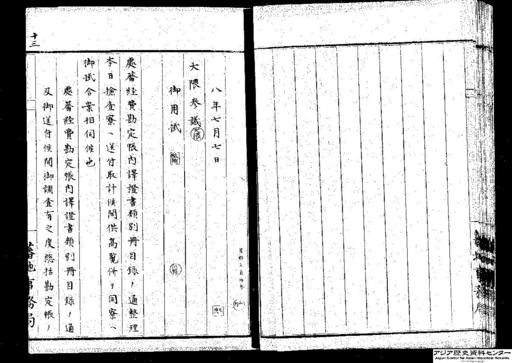 八年七月七日
大隈参議
御用試
處蕃経費勘定帳内譯證書類別冊目録ノ通整理
本日検査寮ヘ送付取計候間供高覧併テ同寮ヘ
御試令案相伺候也
處蕃経費勘定帳内譯證書類別冊目録ノ通
及御送付候間御調査有之度然ル
勘定帳ノ
蕃地事務局
十三
アジア歴史資料センター
Japan Center for Asian Historical Records